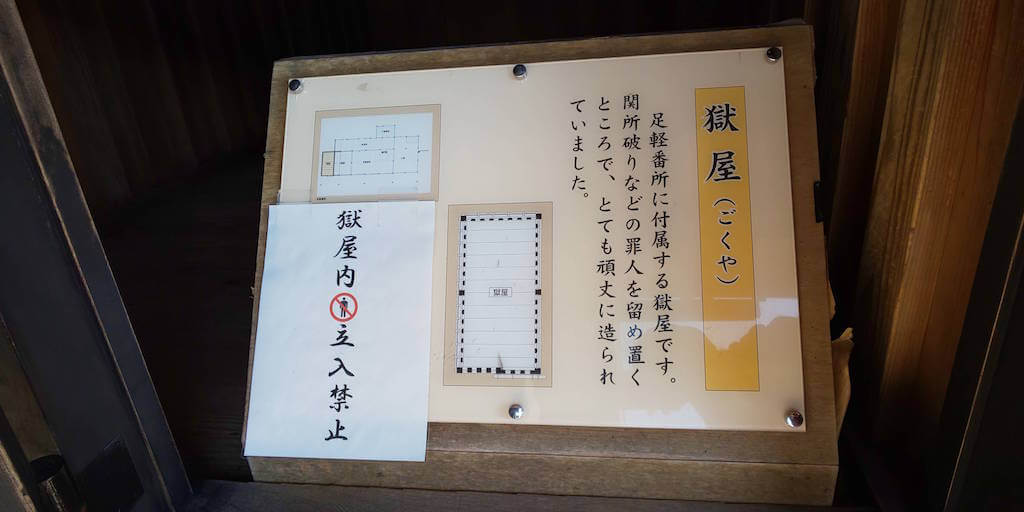 獄屋(ごくや)
足軽番所に付属する獄屋です。
関所破りなどの罪人を留め置く
ところで、とても頑丈に造られ
ていました。
獄屋
獄屋内立入禁止